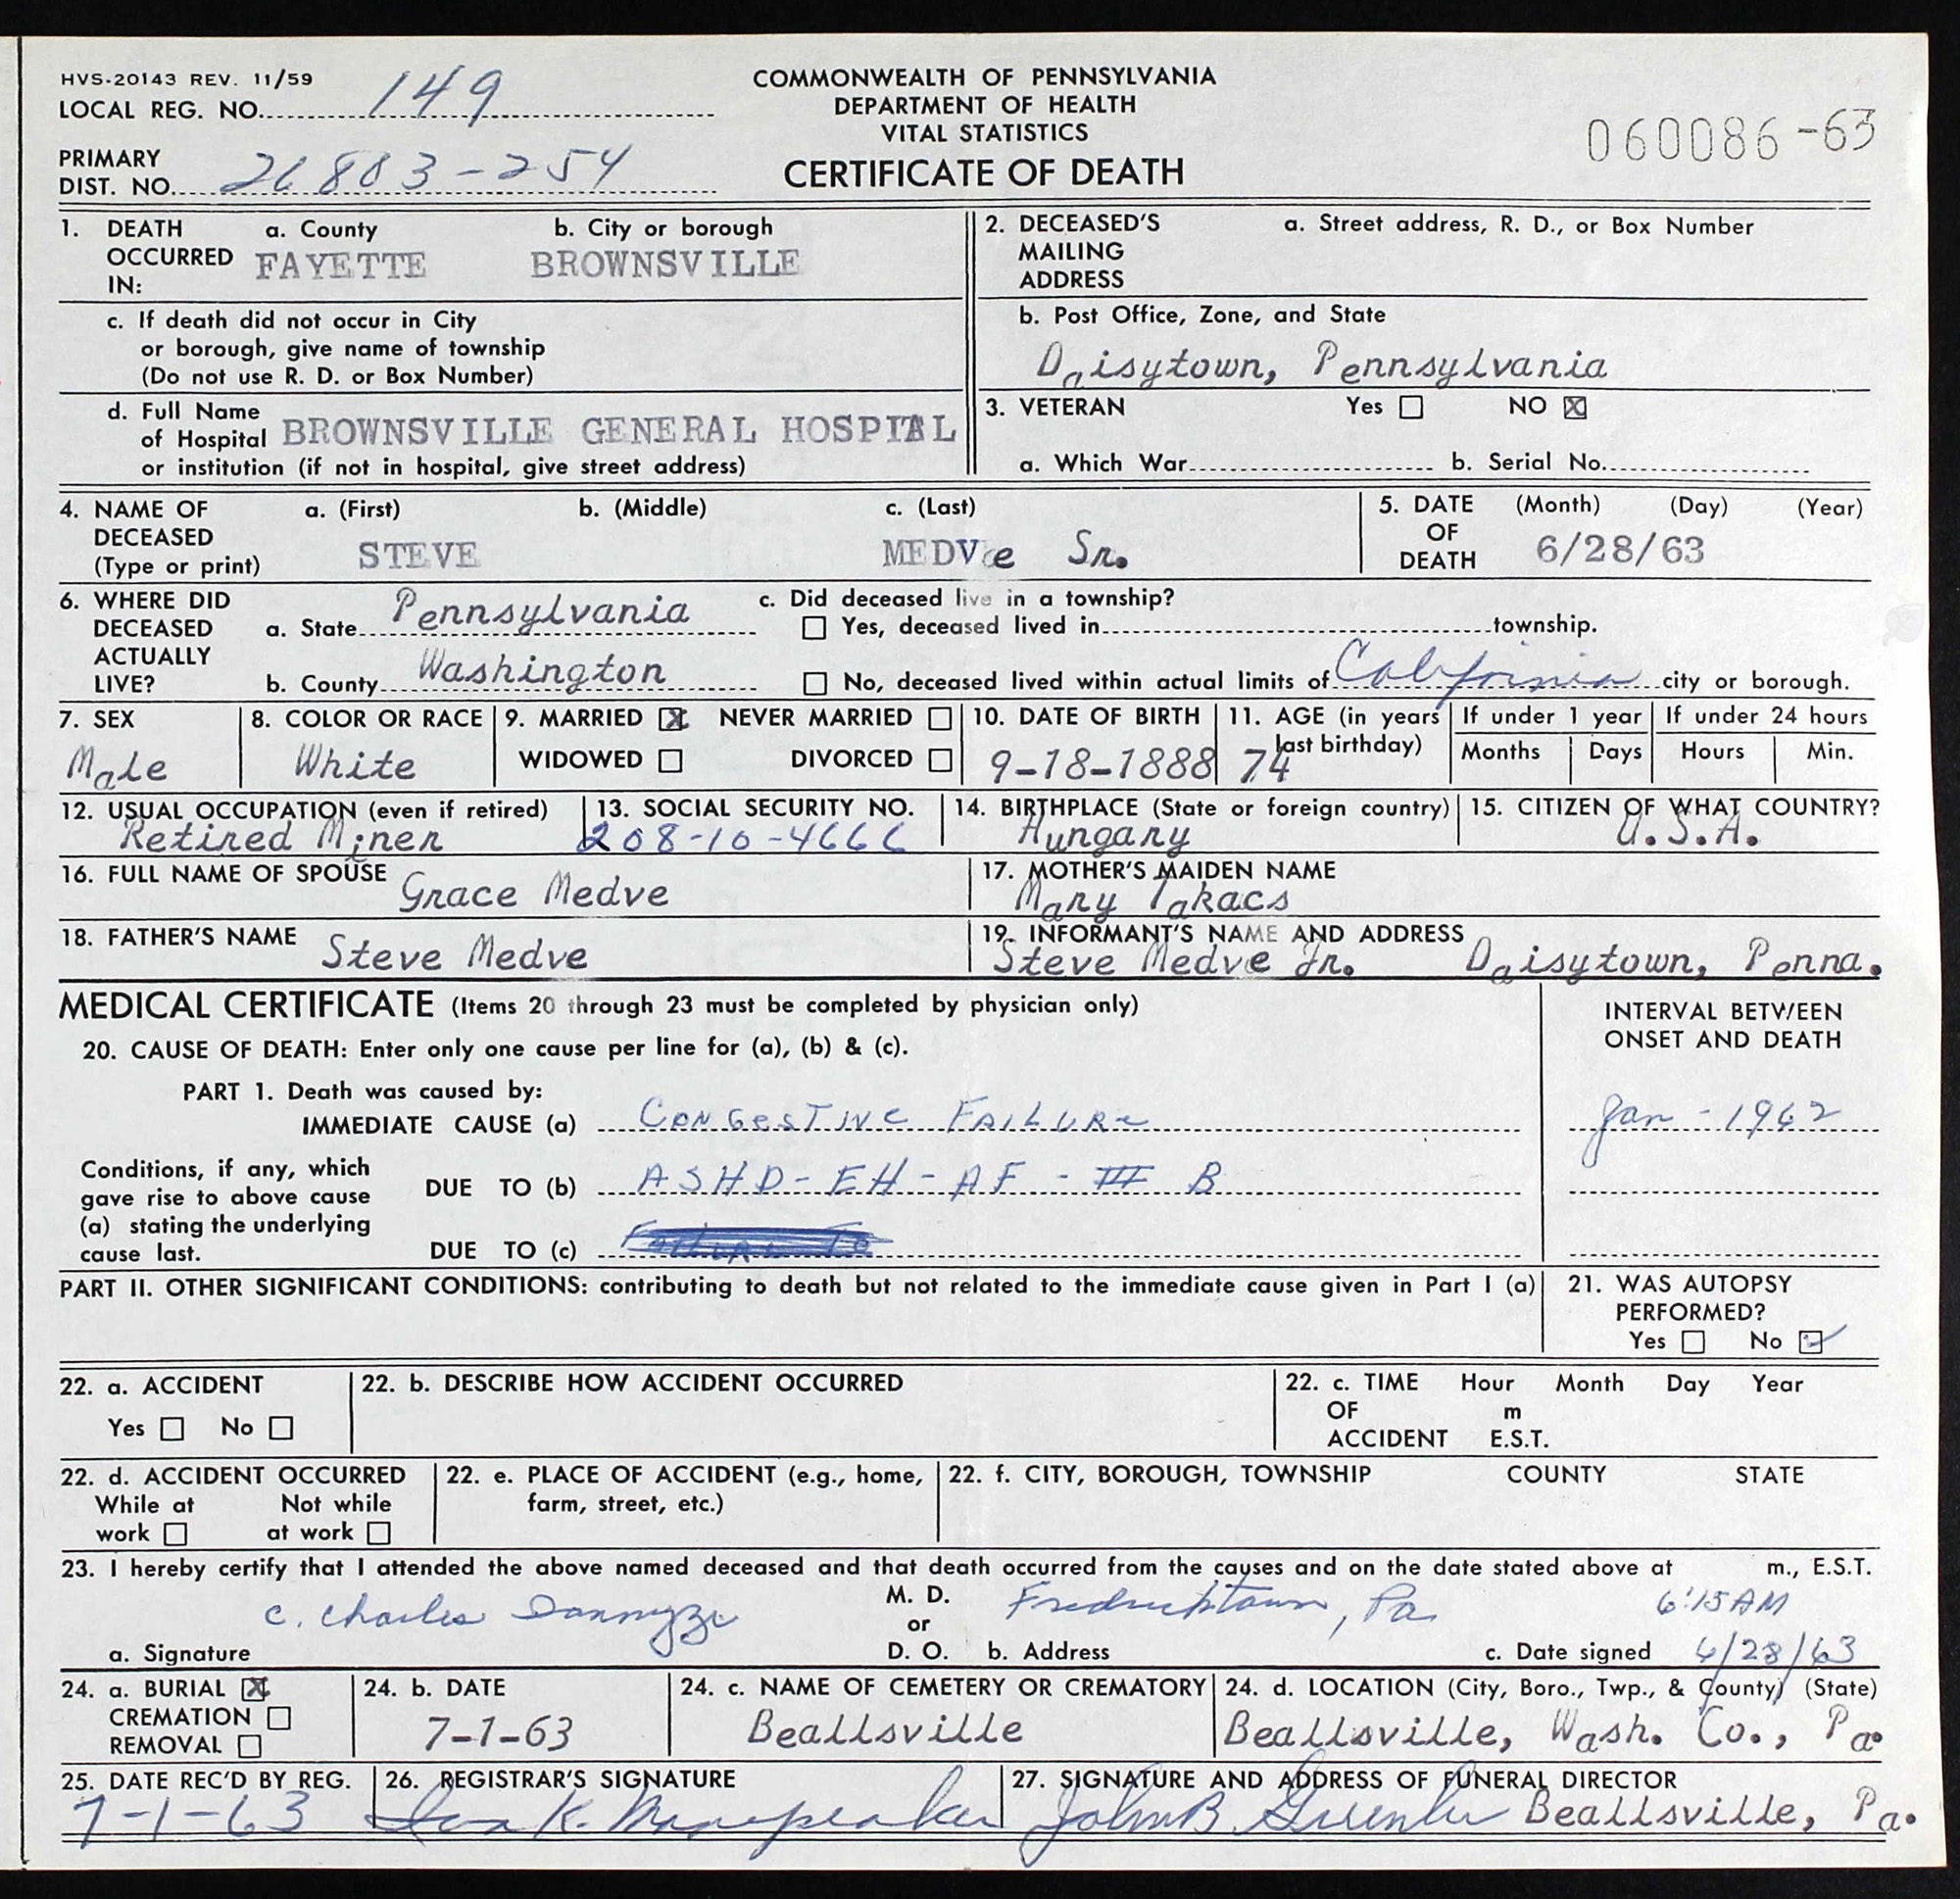 HVS-20143 REV. 11/59
LOCAL REG. NO. 149
COMMONWEALTH OF PENNSYLVANIA
DEPARTMENT OF HEALTH
VITAL STATISTICS
CERTIFICATE OF DEATH
060086-63
PRIMARY
DIST. NO. 26803-254
1. DEATH OCCURRED IN:
a. County FAYETTE
b. City or borough BROWNSVILLE
c. If death did not occur in City
or borough, give name of township
(Do not use R. D. or Box Number)
d. Full Name
of Hospital BROWNSVILLE GENERAL HOSPITAL
or institution (if not in hospital, give street address)
2. DECEASED'S MAILING ADDRESS
a. Street address, R. D., or Box Number
b. Post Office, Zone, and State
Daisytown, Pennsylvania
3. VETERAN Yes ☐ NO ☒
a. Which War b. Serial No.
4. NAME OF DECEASED (Type or print)
a. (First) b. (Middle) c. (Last)
STEVE MEDVe Sr.
5. DATE OF DEATH (Month) (Day) (Year)
6/28/63
6. WHERE DID DECEASED ACTUALLY LIVE?
a. State Pennsylvania
b. County Washington
c. Did deceased live in a township?
☐ Yes, deceased lived in township.
☐ No, deceased lived within actual limits of California city or borough.
7. SEX Male
8. COLOR OR RACE White
9. MARRIED ☒ NEVER MARRIED ☐
WIDOWED ☐ DIVORCED ☐
10. DATE OF BIRTH 9-18-1888
11. AGE (in years last birthday) 74
If under 1 year Months Days
If under 24 hours Hours Min.
12. USUAL OCCUPATION (even if retired) Retired Miner
13. SOCIAL SECURITY NO. 208-10-4666
14. BIRTHPLACE (State or foreign country) Hungary
15. CITIZEN OF WHAT COUNTRY? U.S.A.
16. FULL NAME OF SPOUSE Grace Medve
17. MOTHER'S MAIDEN NAME Mary Takacs
18. FATHER'S NAME Steve Medve
19. INFORMANT'S NAME AND ADDRESS
Steve Medve Jr. Daisytown, Penna.
MEDICAL CERTIFICATE (Items 20 through 23 must be completed by physician only)
INTERVAL BETWEEN ONSET AND DEATH
20. CAUSE OF DEATH: Enter only one cause per line for (a), (b) & (c).
PART 1. Death was caused by:
IMMEDIATE CAUSE (a) CONGESTIVE FAILURE Jan - 1962
Conditions, if any, which
gave rise to above cause
(a) stating the underlying
cause last.
DUE TO (b) ASHD - EH - AF - III B
DUE TO (c)
PART II. OTHER SIGNIFICANT CONDITIONS: contributing to death but not related to the immediate cause given in Part I (a)
21. WAS AUTOPSY PERFORMED?
Yes ☐ No ☑
22. a. ACCIDENT
Yes ☐ No ☐
22. b. DESCRIBE HOW ACCIDENT OCCURRED
22. c. TIME OF ACCIDENT Hour Month Day Year
m
E.S.T.
22. d. ACCIDENT OCCURRED
While at work ☐ Not while at work ☐
22. e. PLACE OF ACCIDENT (e.g., home, farm, street, etc.)
22. f. CITY, BOROUGH, TOWNSHIP COUNTY STATE
23. I hereby certify that I attended the above named deceased and that death occurred from the causes and on the date stated above at m., E.S.T.
6:15 AM
C. Charles M. D. or D. O. Fredricktown, Pa
a. Signature b. Address c. Date signed 6/28/63
24. a. BURIAL ☒
CREMATION ☐
REMOVAL ☐
24. b. DATE 7-1-63
24. c. NAME OF CEMETERY OR CREMATORY Beallsville
24. d. LOCATION (City, Boro., Twp., & County) (State)
Beallsville, Wash. Co., Pa.
25. DATE REC'D BY REG. 7-1-63
26. REGISTRAR'S SIGNATURE
27. SIGNATURE AND ADDRESS OF FUNERAL DIRECTOR
John B. Beallsville, Pa.